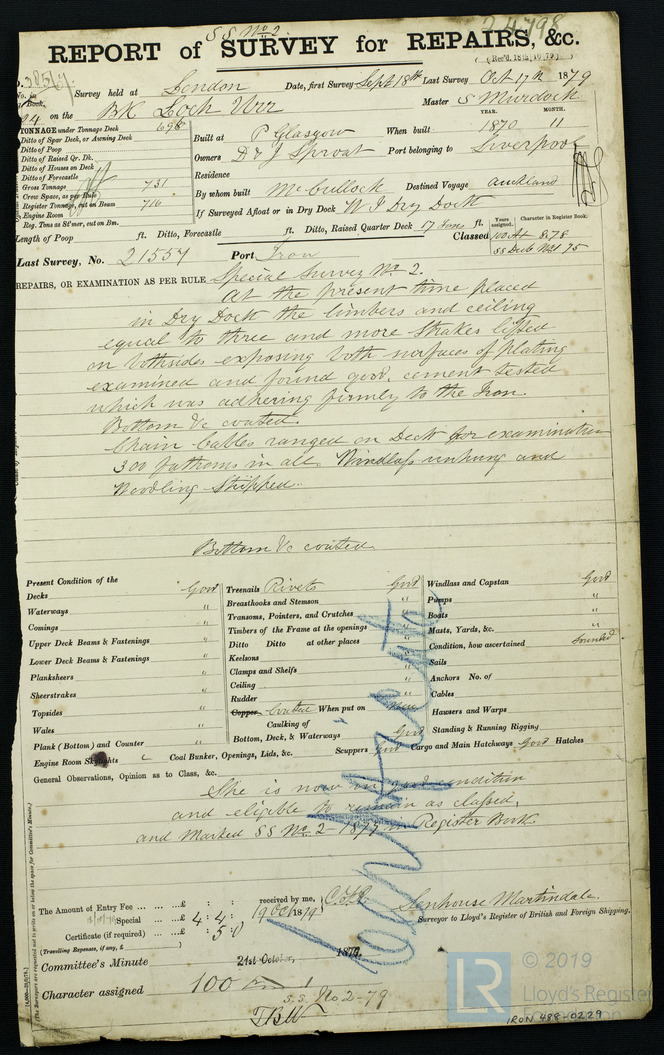 S S No 2
24798
REPORT of SURVEY for REPAIRS, &c.
(Rec'd. 18th/10/79)
Survey held at London Date, first Survey Sept 18th Last Survey Oct 17th 1879
on the BK Loch Urr Master S Murdoch
TONNAGE under Tonnage Deck 698
Ditto of Spar Deck, or Awning Deck
Ditto of Poop
Ditto of Raised Qr. Dk.
Ditto of Houses on Deck
Ditto of Forecastle
Gross Tonnage 731
Crew Space, as per Rule
Register Tonnage, cut on Beam 716
Engine Room
Reg. Tons as St'mer, cut on Bm.
YEAR. MONTH.
Built at P Glasgow When built 1870 11
Owners D & J Sproat Port belonging to Liverpool
Residence
By whom built McCulloch Destined Voyage Auckland
If Surveyed Afloat or in Dry Dock W I Dry Dock
Length of Poop ft. Ditto, Forecastle ft. Ditto, Raised Quarter Deck ft.
Years assigned. Character in Register Book.
Classed 100 A1 8.78
SS Dub No1 75
Last Survey, No. 21557 Port Iron
REPAIRS, OR EXAMINATION AS PER RULE Special Survey No 2.
At the present time placed
in Dry Dock the limbers and ceiling
equal to three and more strakes lifted
on bothsides exposing both surfaces of plating
examined and found good, cement tested
which was adhering firmly to the Iron.
Bottom &c coated.
Chain Cables ranged on Deck for examination
300 fathoms in all. Windlass unhung and
Woodling stripped.
Bottom &c coated.
Present Condition of the
Decks Good
Waterways "
Comings "
Upper Deck Beams & Fastenings "
Lower Deck Beams & Fastenings "
Planksheers "
Sheerstrakes "
Topsides "
Wales "
Plank (Bottom) and Counter "
Engine Room Skylights
Treenails Rivets Good
Breasthooks and Stemson "
Transoms, Pointers, and Crutches "
Timbers of the Frame at the openings "
Ditto Ditto at other places "
Keelsons "
Clamps and Shelfs "
Ceiling "
Rudder "
Copper Coated When put on New
Caulking of
Bottom, Deck, & Waterways Good
Coal Bunker, Openings, Lids, &c. Scuppers Good Cargo and Main Hatchways Good Hatches
Windlass and Capstan Good
Pumps "
Boats "
Masts, Yards, &c. "
Condition, how ascertained Sounded
Sails
Anchors No. of
Cables
Hawsers and Warps
Standing & Running Rigging
General Observations, Opinion as to Class, &c.
She is now in good condition
and eligible to remain as classed,
and Marked SS No 2-1879 in Register Book.
The Amount of Entry Fee ... ... ... £ : :
Special ... ... £ 4 : 4 :
Certificate (if required) ... ... £ : 5 : 0
(Travelling Expenses, if any, £ )
received by me,
19 Oct 1879
Senhouse Martindale.
Surveyor to Lloyd's Register of British and Foreign Shipping.
Committee's Minute 21st October, 1879.
Character assigned 100 A 1
S.S. No 2-79
(The Surveyors are requested not to write on or below the space for Committee's Minute.)
© 2019
LR
Lloyd's Register
IRON 488-0229